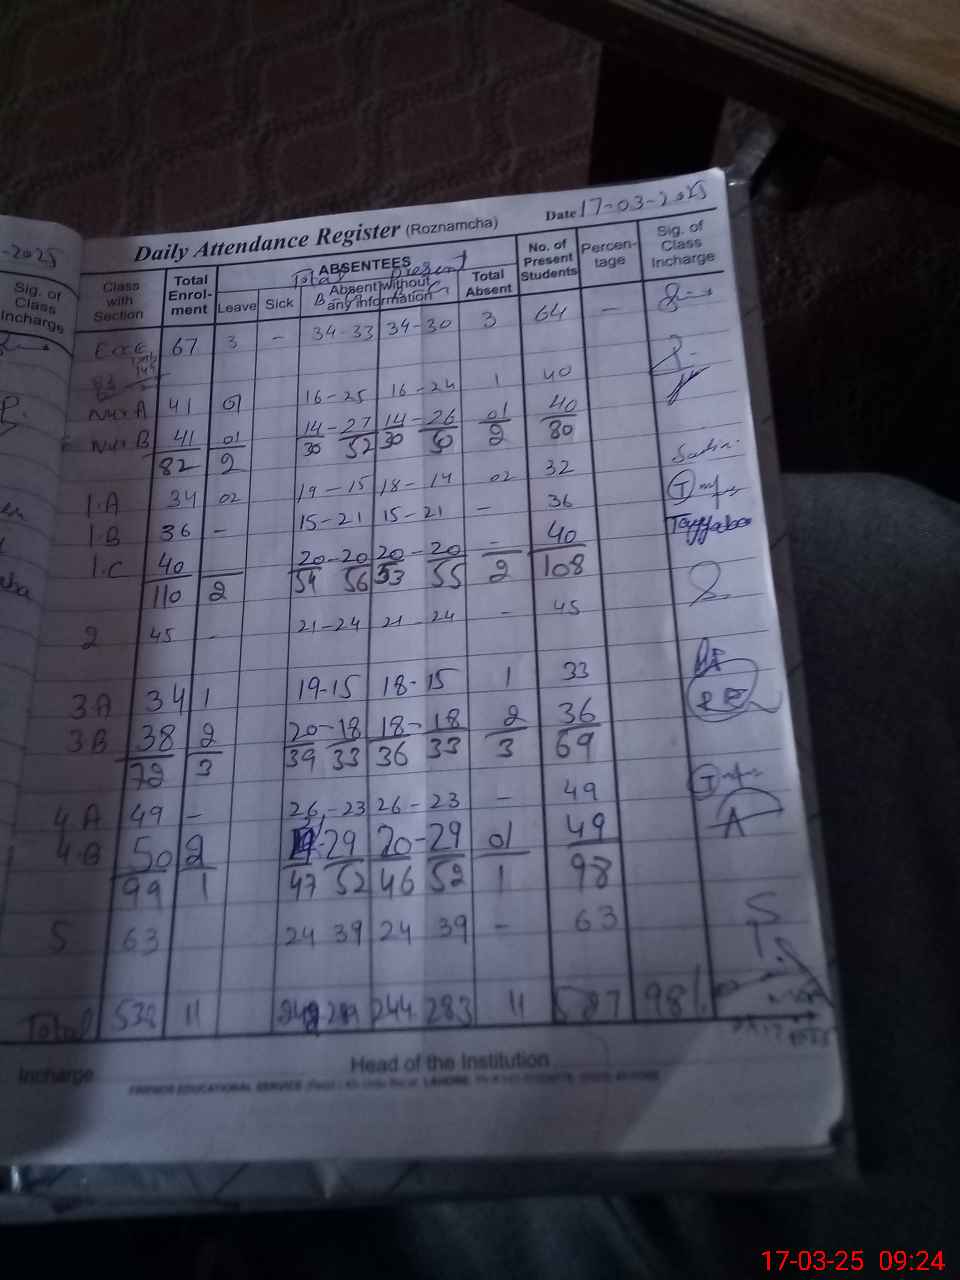 -2025
Sig. of
Class
Incharge
Daily Attendance Register (Roznamcha)
Date 17-03-2025
Class with Section
Total Enrol-ment
ABSENTEES
Leave
Sick
Absent without any information
Total Present
B G B G
Total Absent
No. of Present Students
Percen-tage
Sig. of Class Incharge
ECCE 67 3 - 34-33 34-30 3 64 -
Nur A 41 01 16-25 16-24 1 40
Nur B 41 01 14-27 14-26 01 40
82 2 30 52 30 50 2 80
1.A 34 02 19-15 18-14 02 32
1.B 36 - 15-21 15-21 - 36
1.C 40 20-20 20-20 - 40
110 2 54 56 53 55 2 108
Tayyaba
2 45 - 21-24 21 24 - 45
3A 34 1 19-15 18-15 1 33
3B 38 2 20-18 18-18 2 36
72 3 39 33 36 33 3 69
4A 49 - 26-23 26-23 - 49
4.B 50 2 29 20-29 01 49
99 1 47 52 46 52 1 98
5 63 24 39 24 39 - 63
Total 538 11 289 244 283 11 527 98%
Incharge
Head of the Institution
17-03-25 09:24